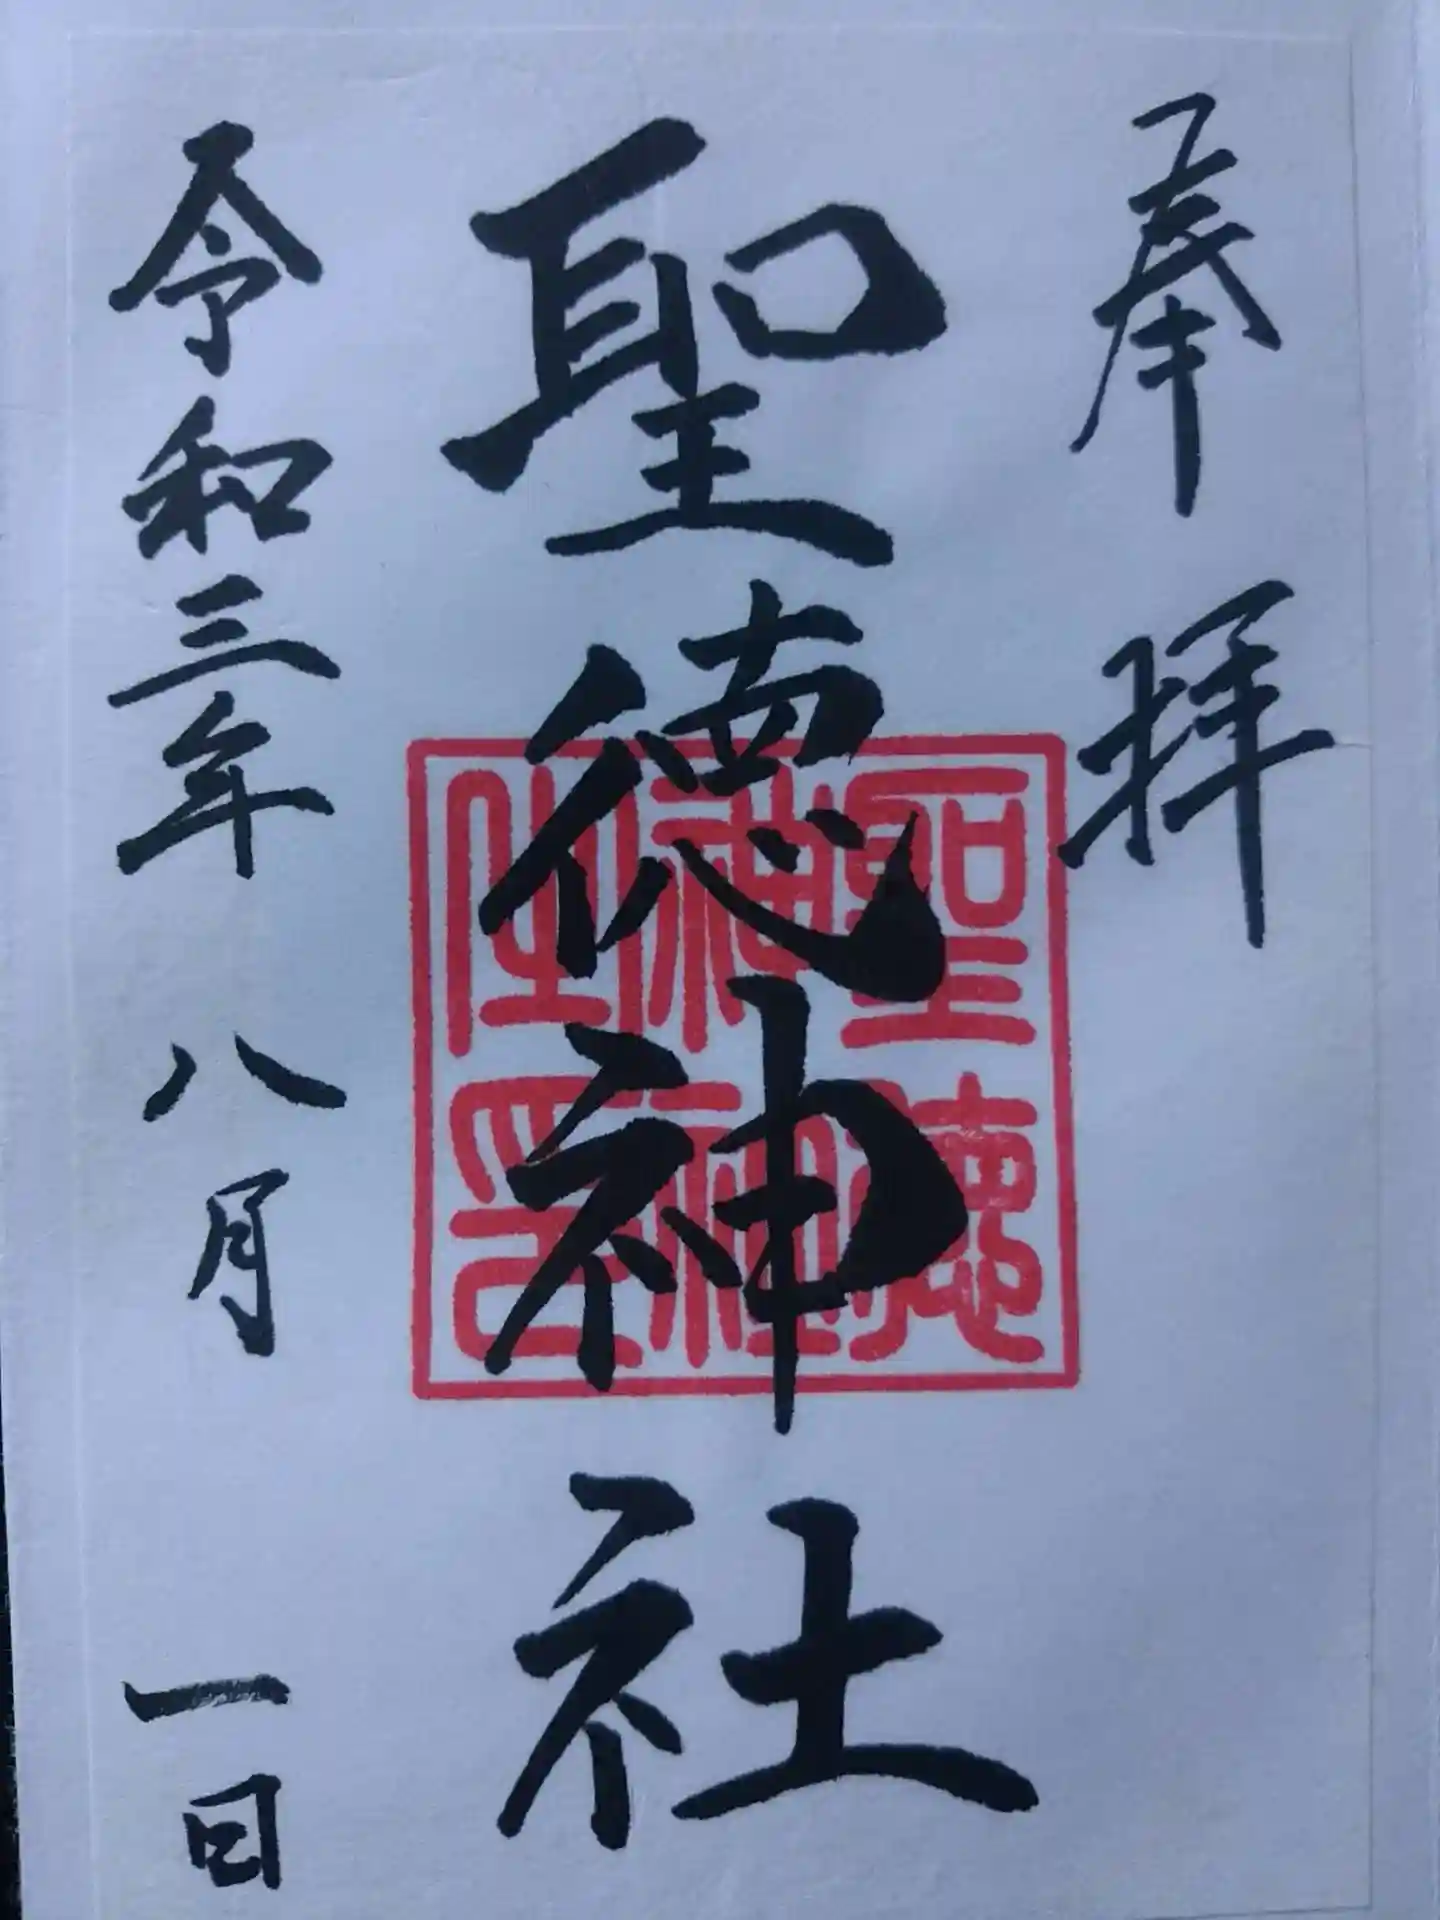 奉拝
聖徳神社
聖徳
神社
之印
令和三年八月一日